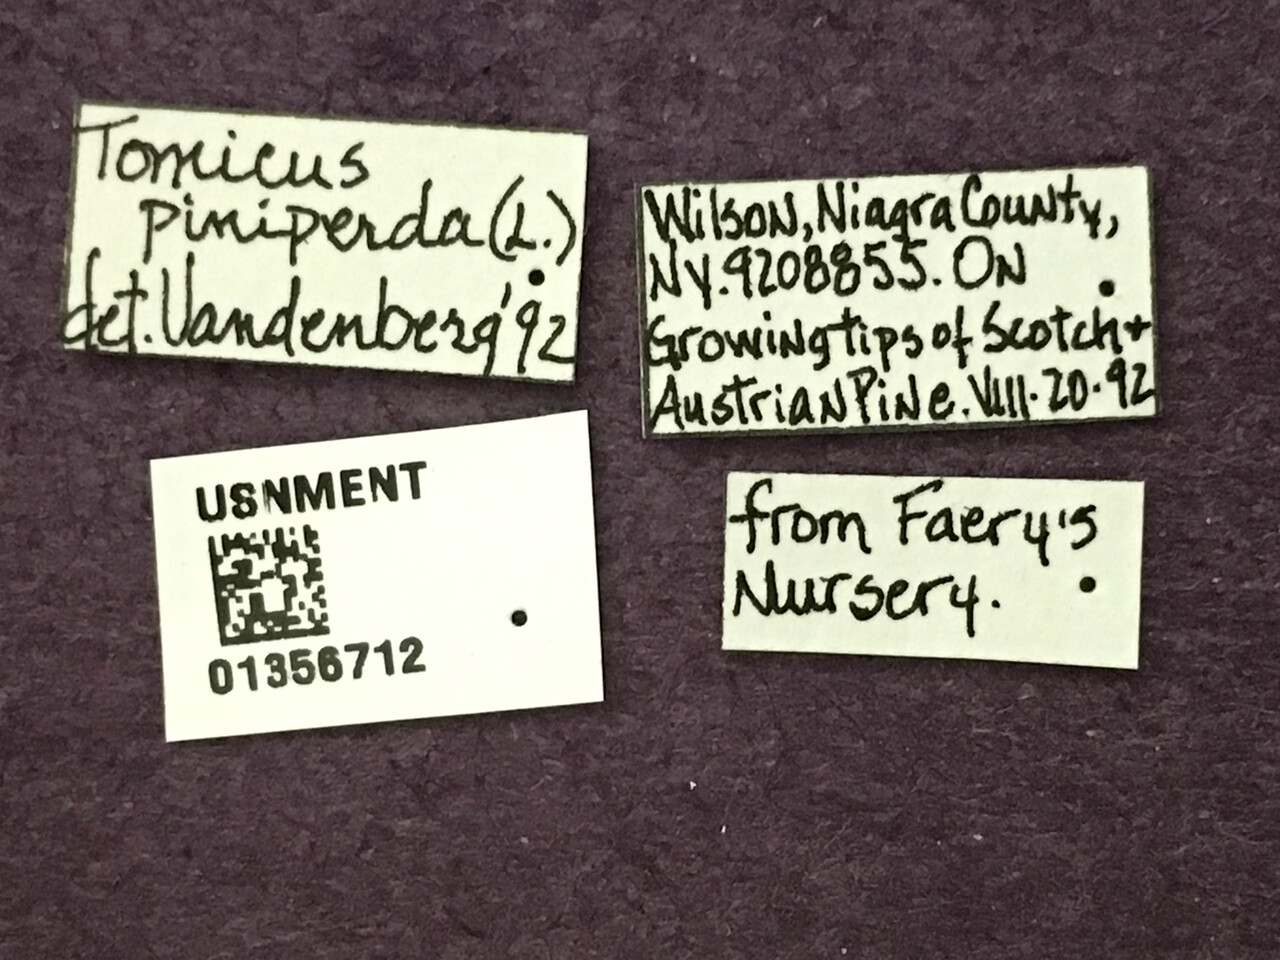 Tomicus
piniperda (L.)
det. Vandenberg '92
Wilson, Niagra County,
NY. 9208855. On
Growing tips of Scotch +
Austrian Pine. VIII. 20. 92
USNMENT
01356712
from Faery's
Nursery.